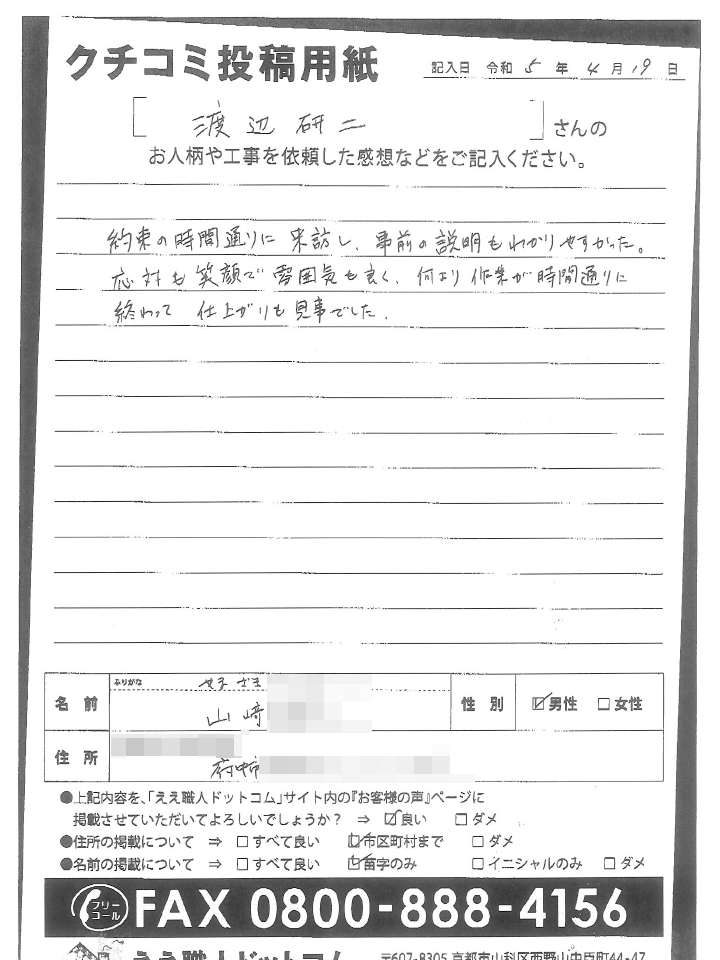 クチコミ投稿用紙
記入日 令和 5 年 4 月 19 日
[ 渡辺研二 ] さんの
お人柄や工事を依頼した感想などをご記入ください。
約束の時間通りに 来訪し、事前の説明もわかりやすかった。
応対も笑顔で雰囲気も良く、何より作業が時間通りに
終わって 仕上がりも見事でした。
ふりがな
名前 山﨑 性別 ☑男性 □女性
住所 府中市
●上記内容を、「ええ職人ドットコム」サイト内の『お客様の声』ページに
掲載させていただいてよろしいでしょうか? ⇒ ☑良い □ダメ
●住所の掲載について ⇒ □すべて良い ☑市区町村まで □ダメ
●名前の掲載について ⇒ □すべて良い ☑苗字のみ □イニシャルのみ □ダメ
フリーコール FAX 0800-888-4156
ええ職人ドットコム 〒607-8305 京都市山科区西野山中臣町44-47